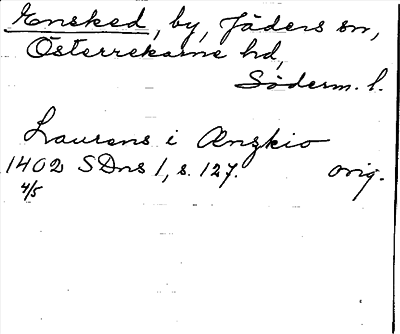 Ensked, by, Jäders sn,
Österrekarne hd,
Söderm. l.
Laurens i Ænzkio
1402 SDns 1, s. 127. orig.
4/5